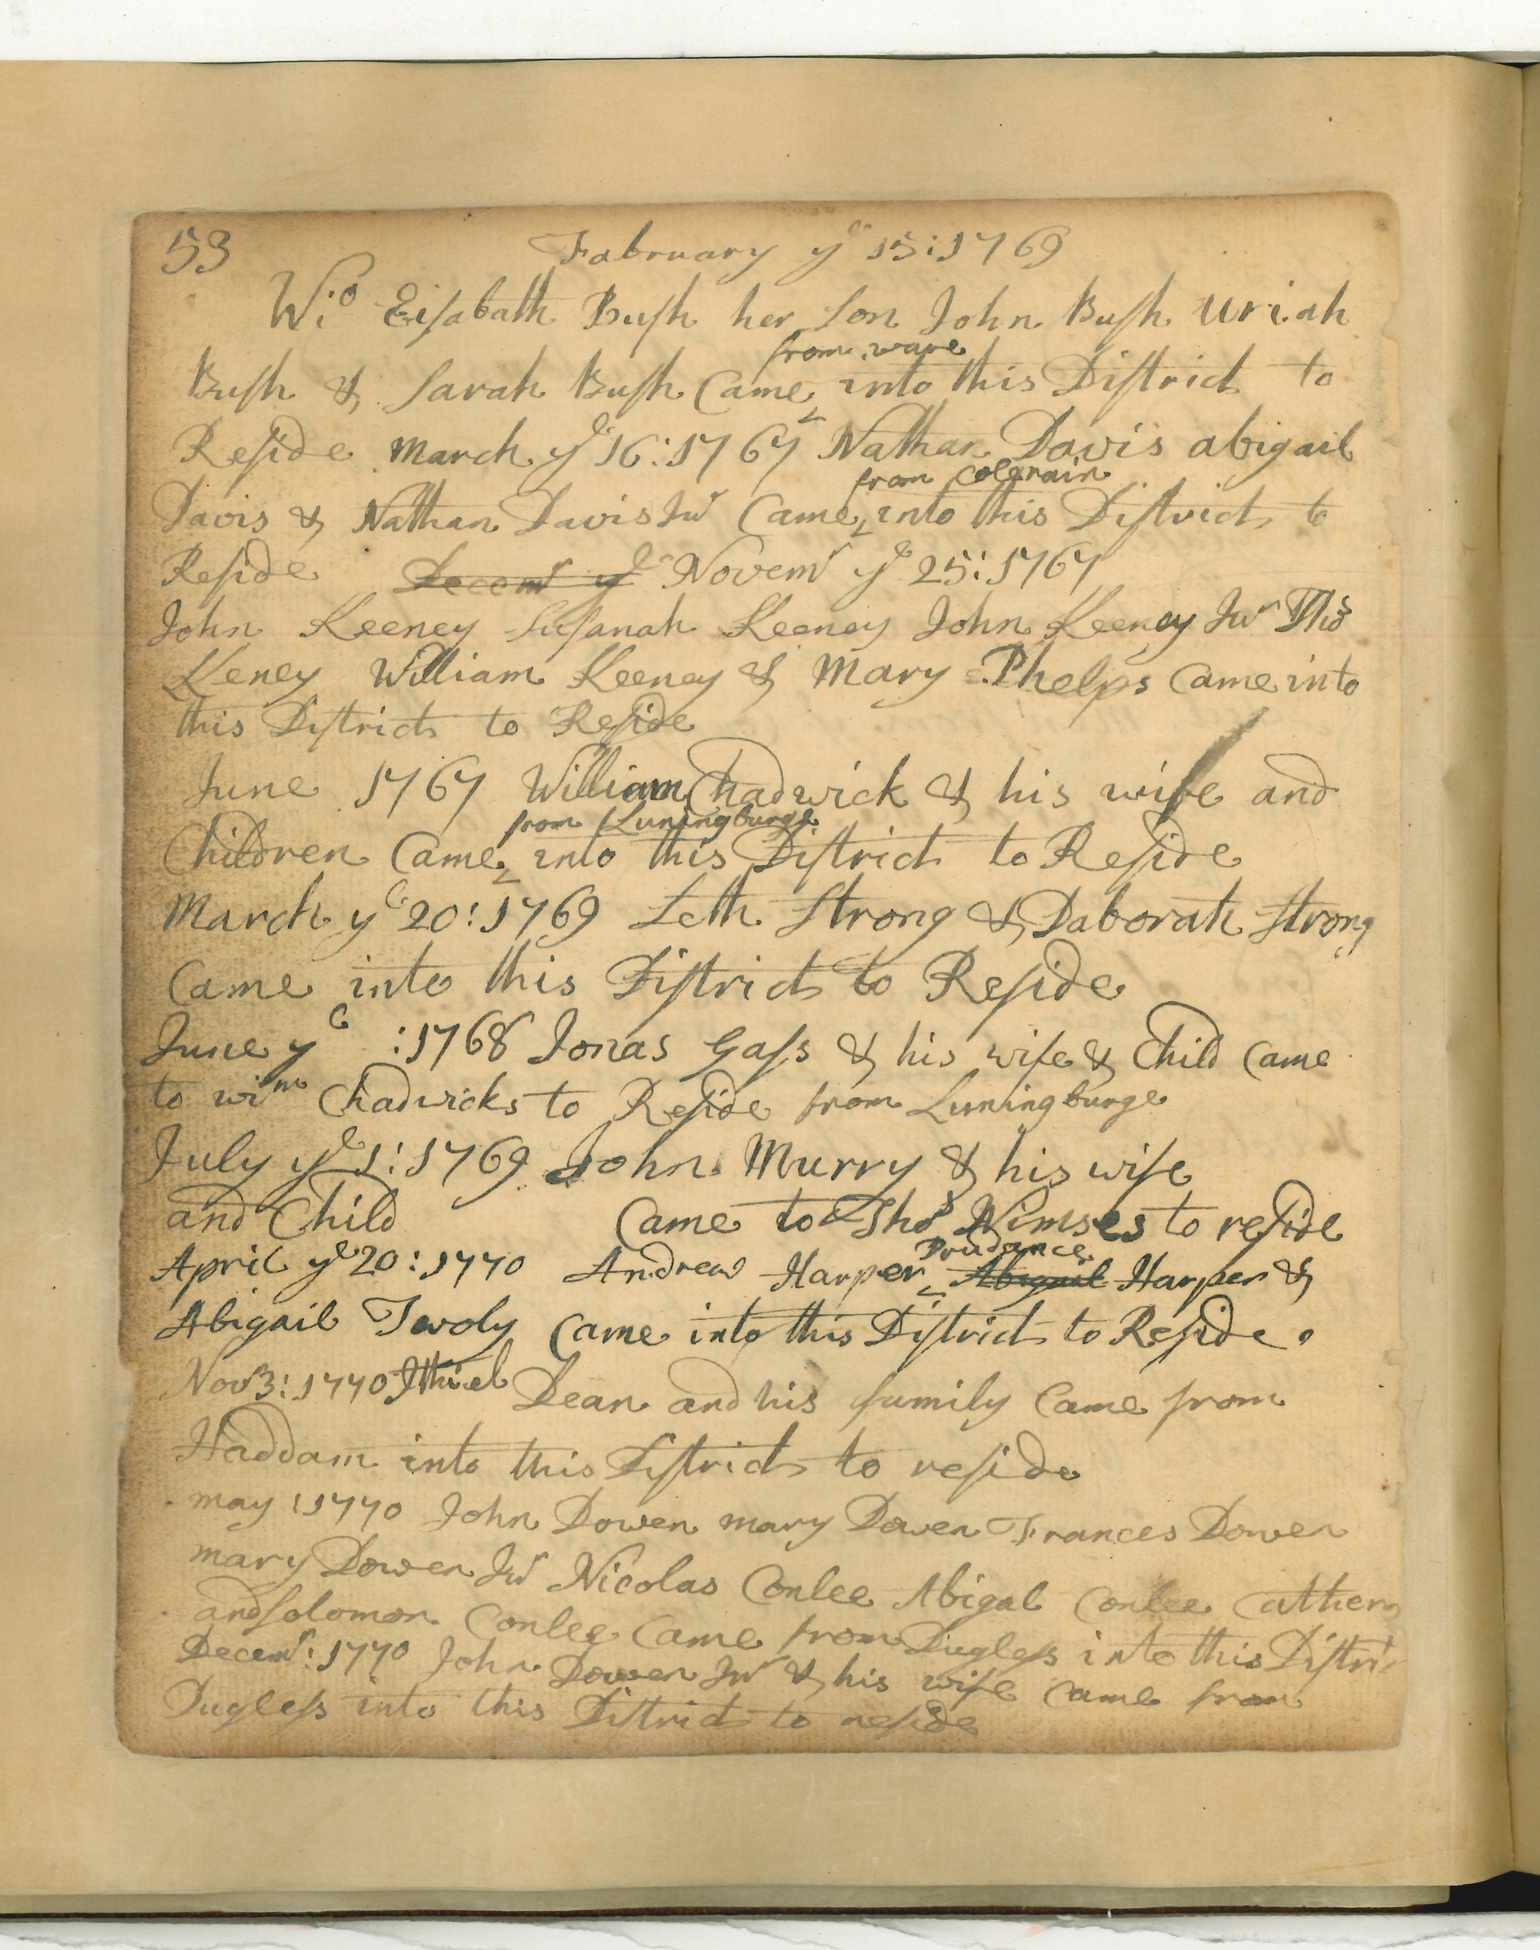 53 Fabruary ye 15:1769
Wi:o Eisabath Bush her Son John Bush Uriah
from ware
Bush & Sarah Bush Came into this District to
Reside March ye 16:1767 Nathan Davis abigail
from Colerain
Davis & Nathan Davis Jur Came into this District to
Reside Decemr ye Novemr ye 25:1767
John Keeney Susanah Keeney John Keeney Jur Thos
Keney William Keeney & Mary Phelps Came into
this District to Reside
June 1767 William Chadwick & his wife and
from Luningburge
Children Came into this District to Reside
March ye 20:1769 Seth Strong & Daborah Strong
Came into this District to Reside
June ye :1768 Jonas Gass & his wife & Child Came
to wim Chadwicks to Reside from Luningburge
July ye 1:1769 John Murry & his wife
and Child Came to Thos Nimses to reside
Prudance
April ye 20:1770 Andrew Harper Abigail Harper &
Abigail Twoly Came into this District to Reside.
Nov 3:1770 Ithiel Dean and his family Came from
Haddam into this District to reside
may :1770 John Dowen mary Dowen Frances Dowen
mary Dowen Jur Nicolas Conlee Abigal Conlee Cathern
and Solomon Conlee Came from Dugless into this Distri
Decemr:1770 John Dowen Jur & his wife Came from
Dugless into this District to reside